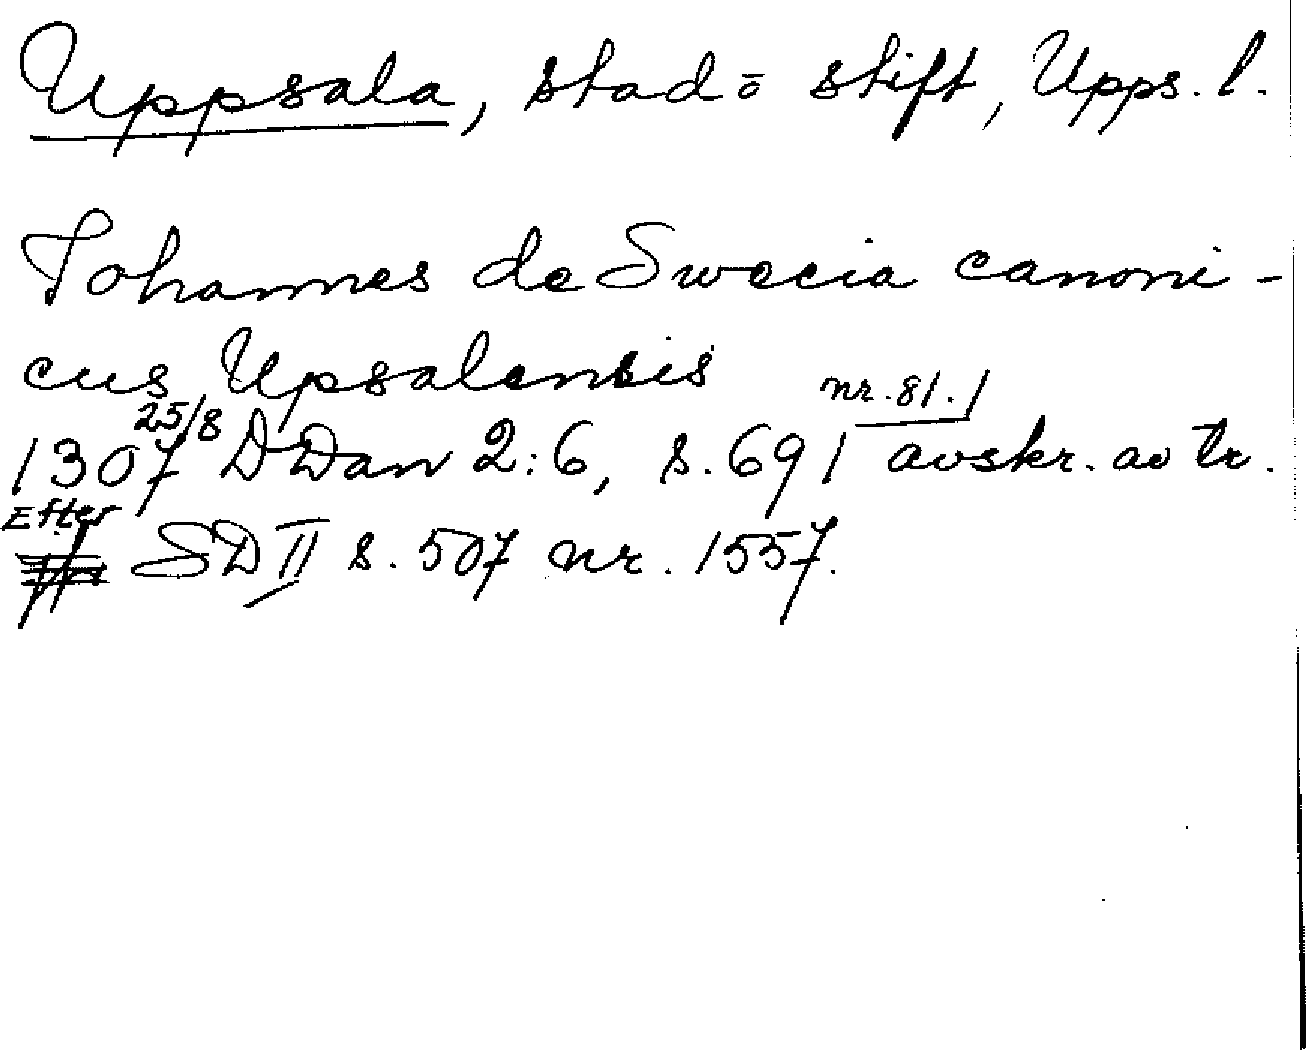 Uppsala, stad o stift, Upps. l.
Johannes de Swecia canoni-
cus Upsalensis
nr. 81.
1307 25/8 DDan 2:6, s. 691 avskr. av tr.
Efter
SD II s. 507 nr. 1557.